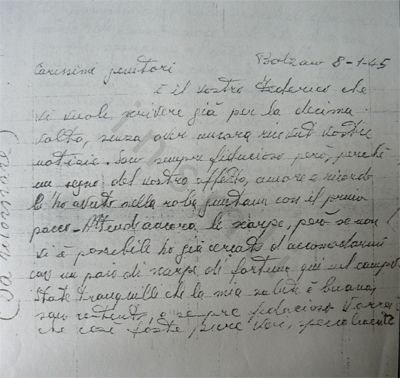 Bolzano 8-1-45
Carissimi genitori
è il vostro Federico che
vi vuole scrivere già per la decima
volta, senza aver ancora ricevuto vostre
notizie. Son sempre fiducioso però, perché
un segno del vostro affetto, amore e ricordo
l'ho avuto nella roba giuntami con il primo
pacco. Attendo ancora le scarpe, però se non
vi è possibile ho già cercato d'accomodarmi
con un paio di scarpe di fortuna qui nel campo.
State tranquilli che la mia salute è buona,
e sempre fiducioso
che così foste pure voi, specialmente